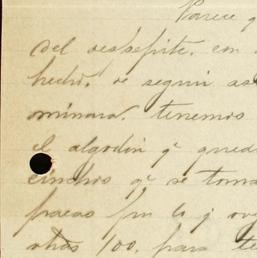 Parece q
del desbepite. con
hecho. se seguir as
ominara. tenemos
el algodón q' qued
cinchos q' se toma
pacas
otras 100. para te